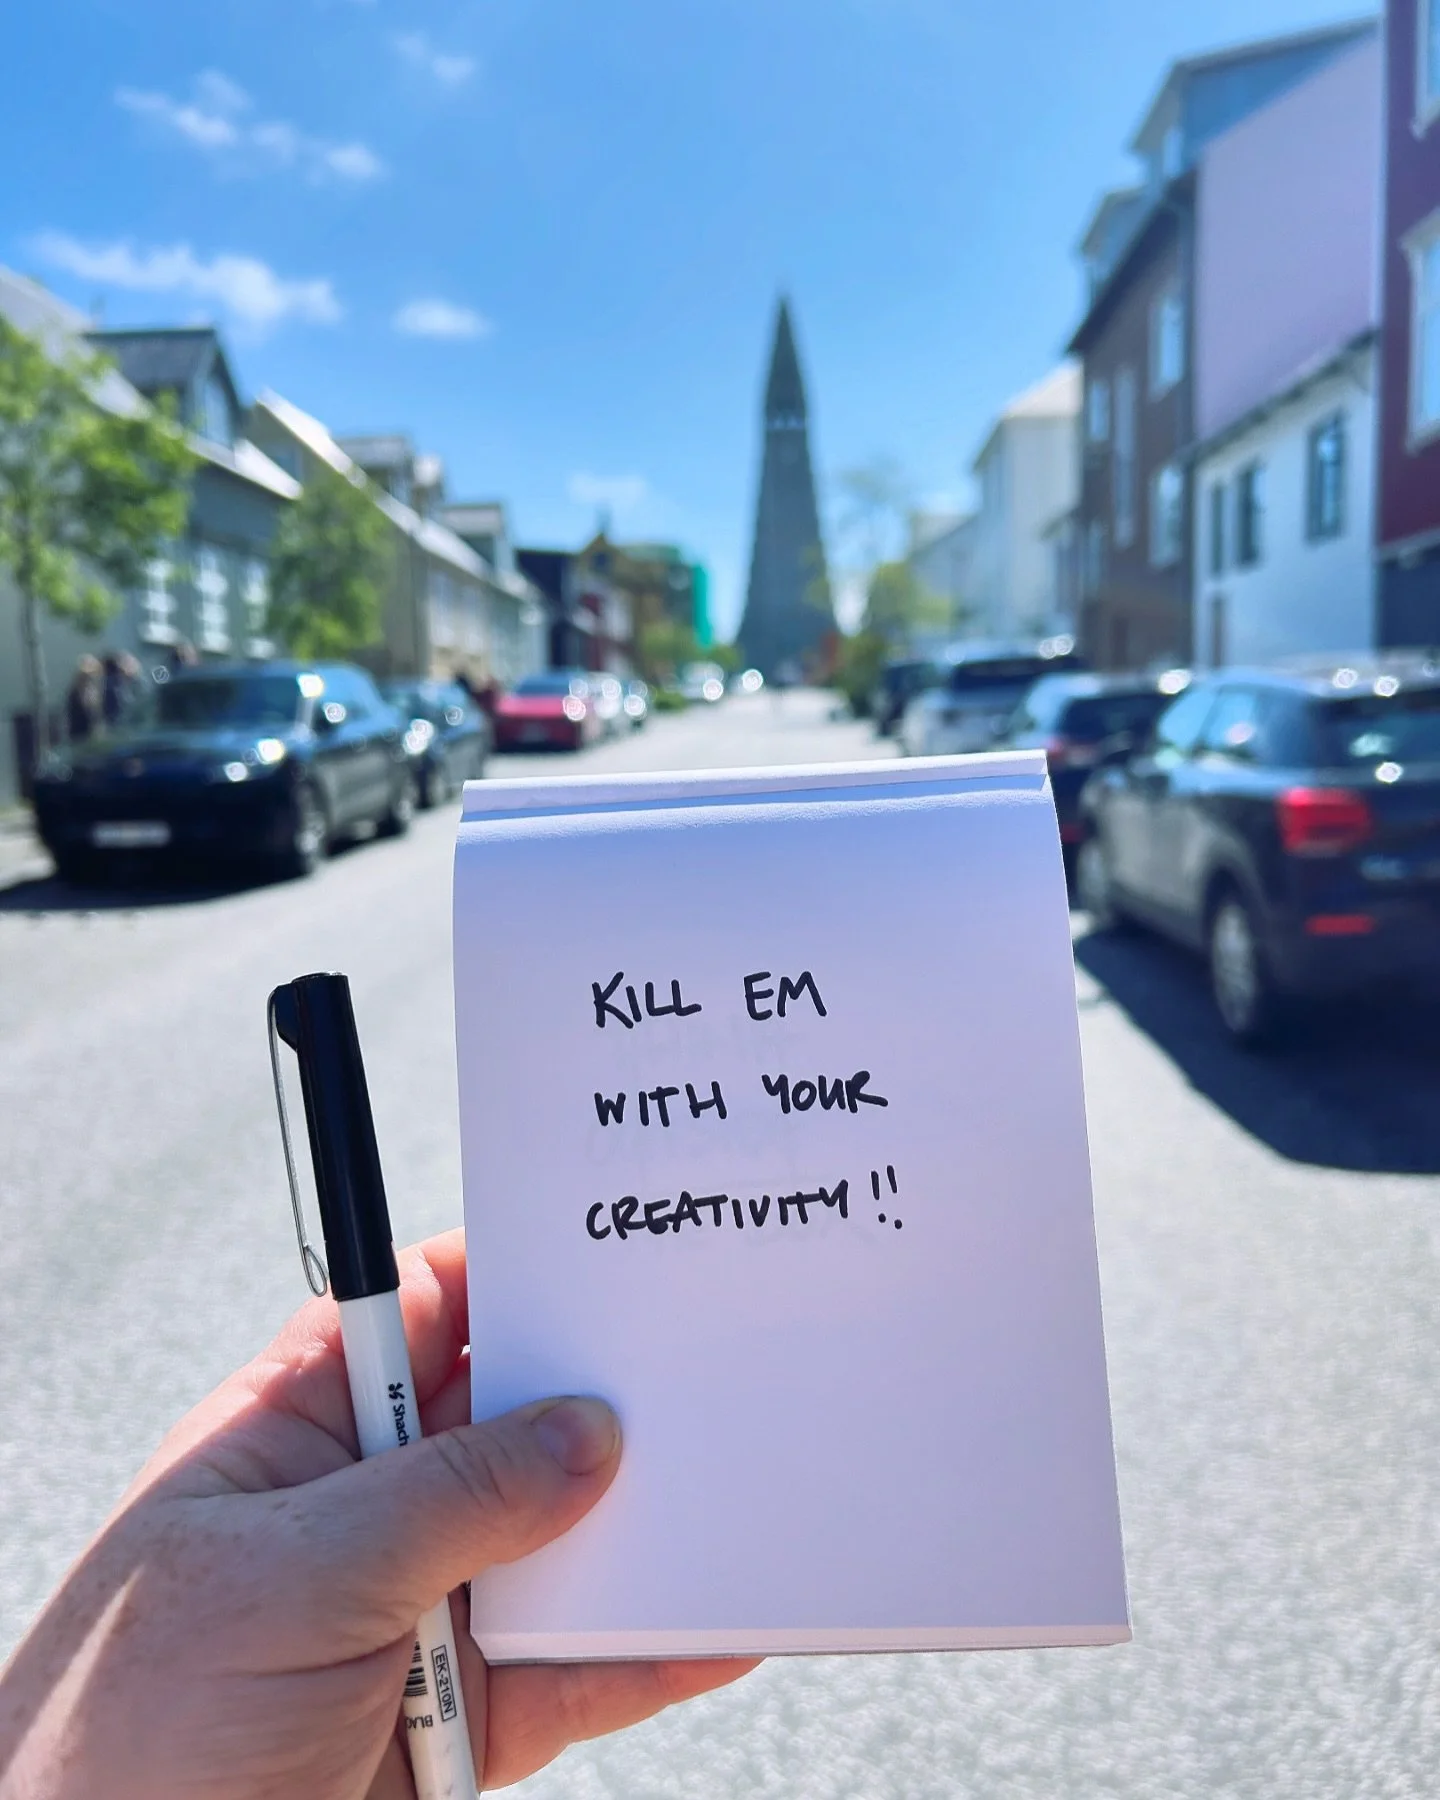 KILL EM
WITH YOUR
CREATIVITY!!
Shach
EK-210N